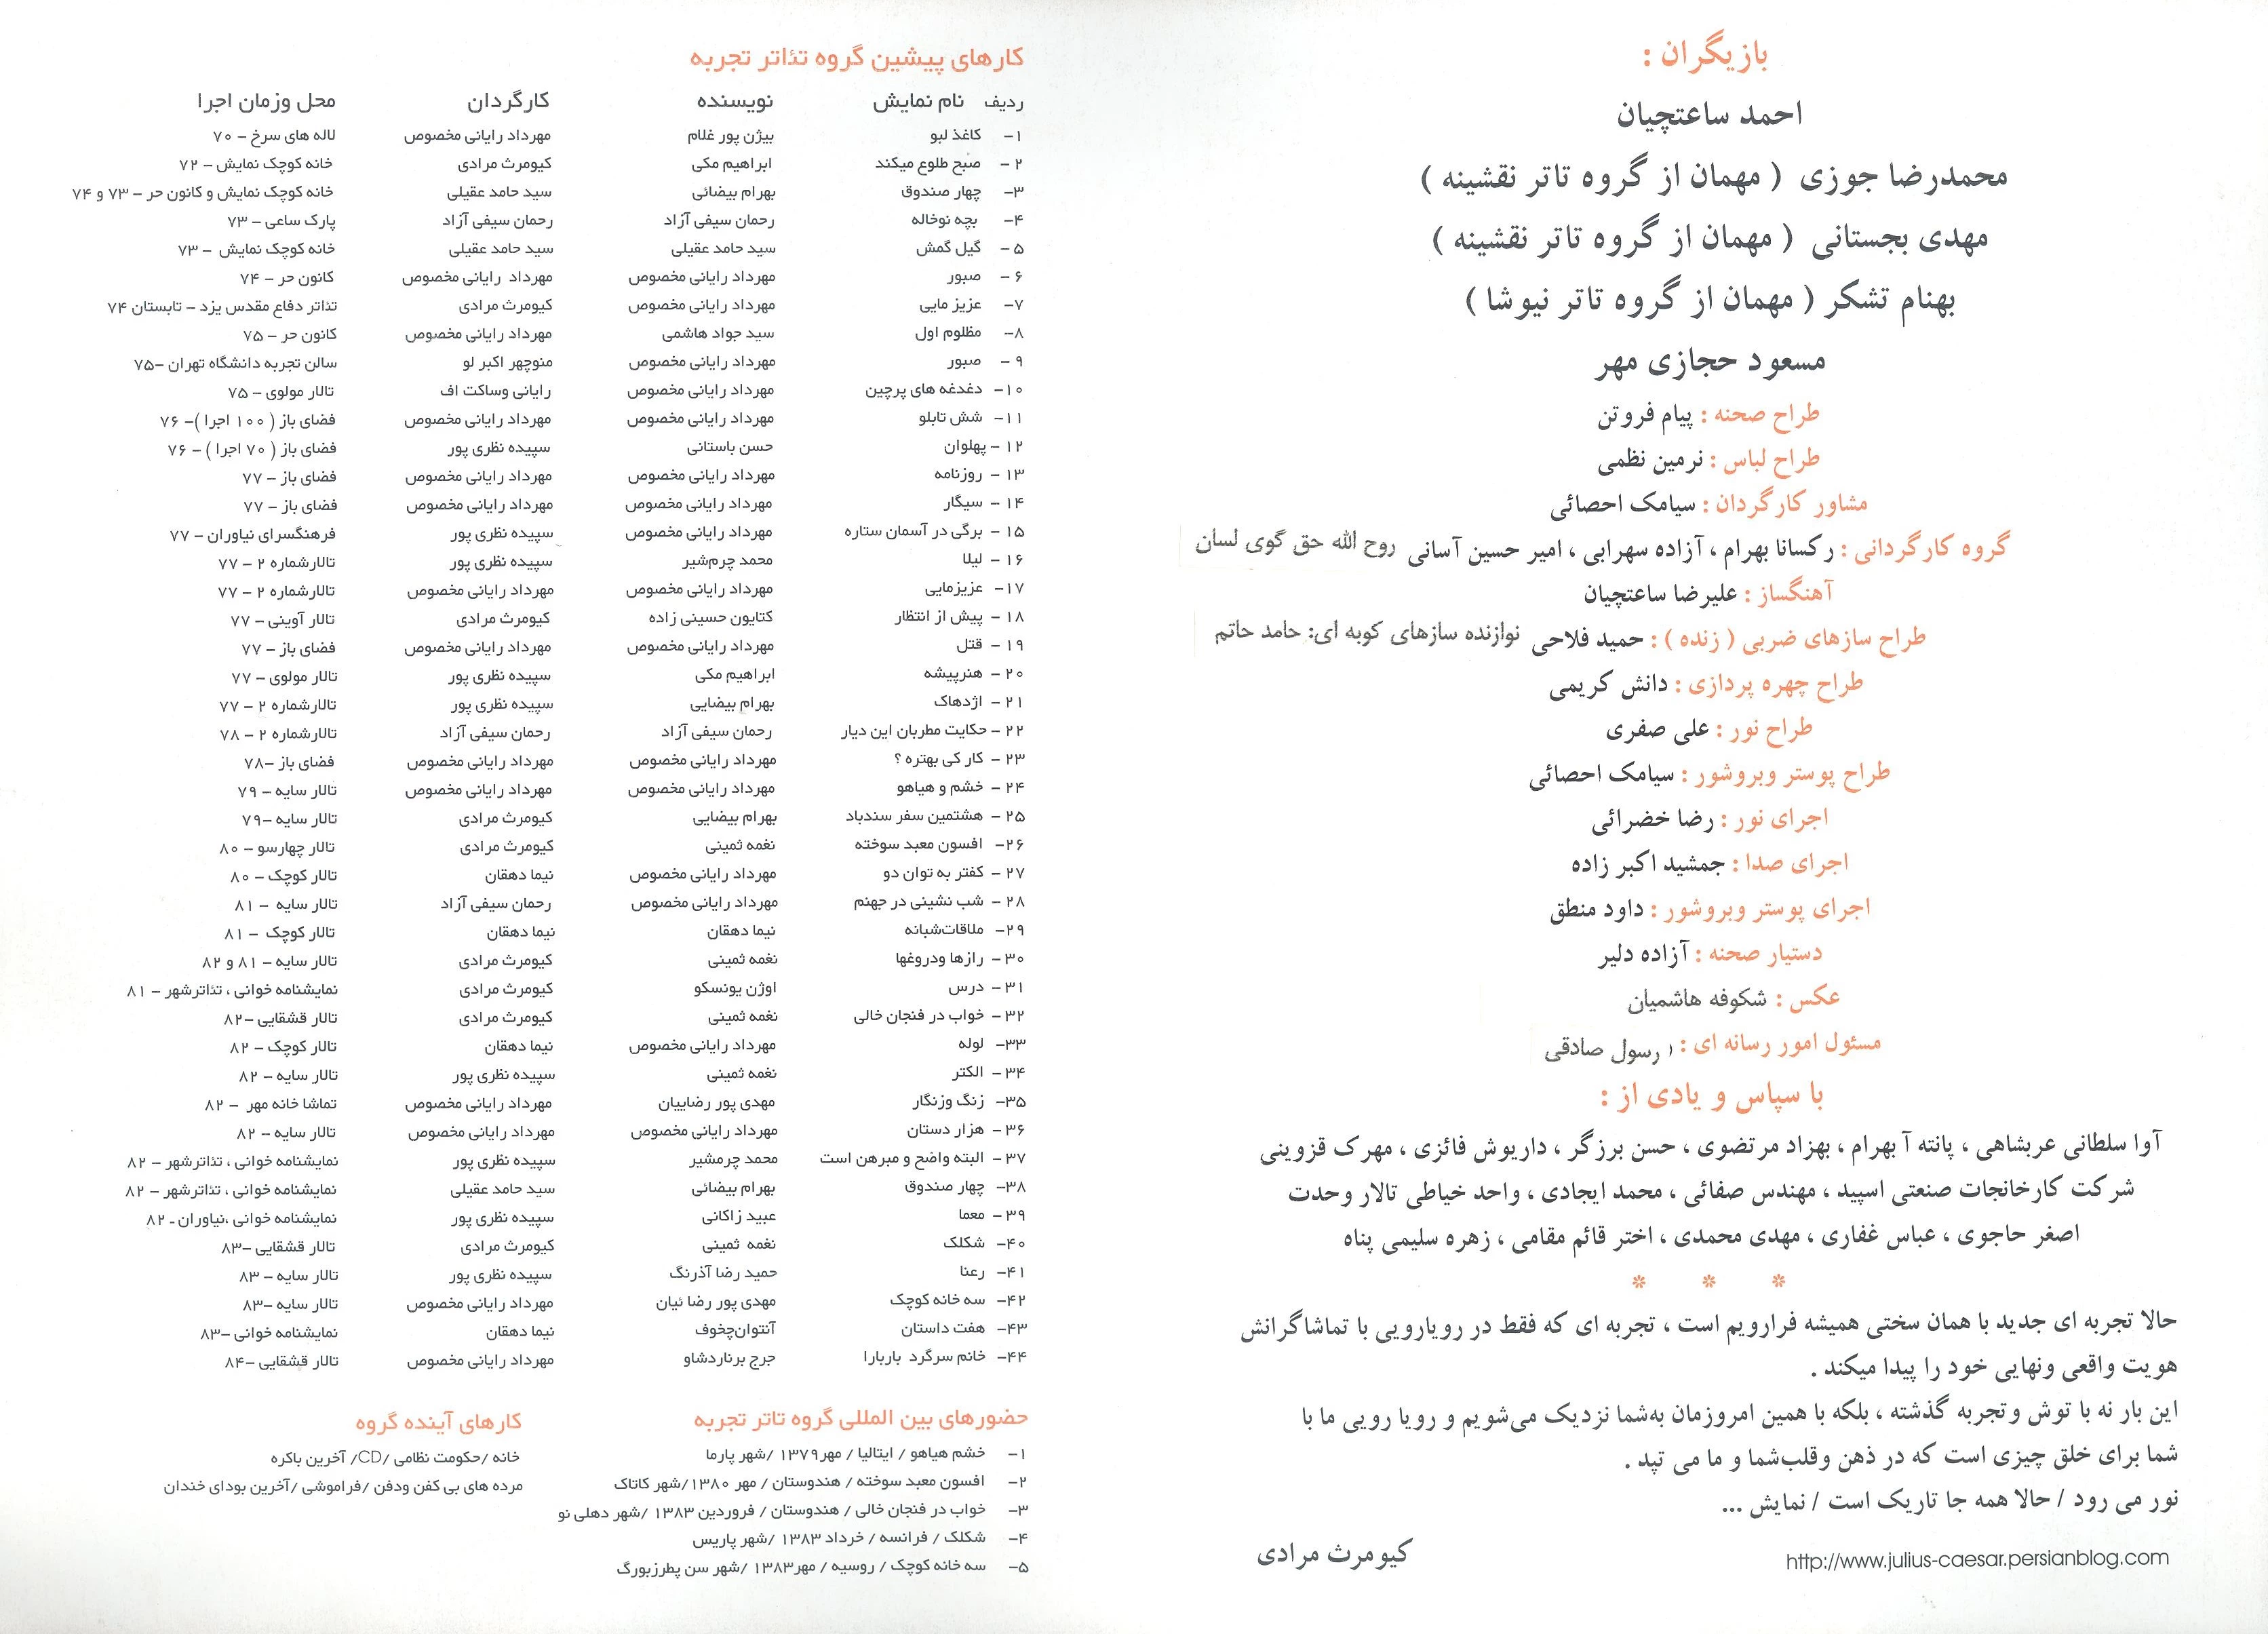 بازیگران :
احمد ساعتچیان
محمدرضا جوزی ( مهمان از گروه تاتر نقشینه )
مهدی بجستانی ( مهمان از گروه تاتر نقشینه )
بهنام تشکر ( مهمان از گروه تاتر نیوشا )
مسعود حجازی مهر
طراح صحنه : پیام فروتن
طراح لباس : نرمین نظمی
مشاور کارگردان : سیامک احصائی
گروه کارگردانی : رکسانا بهرام ، آزاده سهرابی ، امیر حسین آسانی روح الله حق گوی لسان
آهنگساز : علیرضا ساعتچیان
طراح سازهای ضربی ( زنده ) : حمید فلاحی نوازنده سازهای کوبه ای: حامد حاتم
طراح چهره پردازی : دانش کریمی
طراح نور : علی صفری
طراح پوستر وبروشور : سیامک احصائی
اجرای نور : رضا خضرائی
اجرای صدا : جمشید اکبر زاده
اجرای پوستر وبروشور : داود منطق
دستیار صحنه : آزاده دلیر
عکس : شکوفه هاشمیان
مسئول امور رسانه ای : رسول صادقی
با سپاس و یادی از :
آوا سلطانی عربشاهی ، پانته آ بهرام ، بهزاد مرتضوی ، حسن برزگر ، داریوش فائزی ، مهرک قزوینی
شرکت کارخانجات صنعتی اسپید ، مهندس صفائی ، محمد ایجادی ، واحد خیاطی تالار وحدت
اصغر حاجوی ، عباس غفاری ، مهدی محمدی ، اختر قائم مقامی ، زهره سلیمی پناه
* * *
حالا تجربه ای جدید با همان سختی همیشه فرارویم است ، تجربه ای که فقط در رویارویی با تماشاگرانش
هویت واقعی ونهایی خود را پیدا میکند .
این بار نه با توش وتجربه گذشته ، بلکه با همین امروزمان به‌شما نزدیک می‌شویم و رویا رویی ما با
شما برای خلق چیزی است که در ذهن وقلب‌شما و ما می تپد .
نور می رود / حالا همه جا تاریک است / نمایش ...
کیومرث مرادی
http://www.julius-caesar.persianblog.com
کارهای پیشین گروه تئاتر تجربه
ردیف نام نمایش نویسنده کارگردان محل وزمان اجرا
۱- کاغذ لبو بیژن پور غلام مهرداد رایانی مخصوص لاله های سرخ – ۷۰
۲ - صبح طلوع میکند ابراهیم مکی کیومرث مرادی خانه کوچک نمایش – ۷۲
۳- چهار صندوق بهرام بیضائی سید حامد عقیلی خانه کوچک نمایش و کانون حر – ۷۳ و ۷۴
۴- بچه نوخاله رحمان سیفی آزاد رحمان سیفی آزاد پارک ساعی – ۷۳
۵ - گیل گمش سید حامد عقیلی سید حامد عقیلی خانه کوچک نمایش – ۷۳
۶ - صبور مهرداد رایانی مخصوص مهرداد رایانی مخصوص کانون حر – ۷۴
۷- عزیز مایی مهرداد رایانی مخصوص کیومرث مرادی تئاتر دفاع مقدس یزد – تابستان ۷۴
۸- مظلوم اول سید جواد هاشمی مهرداد رایانی مخصوص کانون حر – ۷۵
۹ - صبور مهرداد رایانی مخصوص منوچهر اکبر لو سالن تجربه دانشگاه تهران –۷۵
۱۰- دغدغه های پرچین مهرداد رایانی مخصوص رایانی وساکت اف تالار مولوی – ۷۵
۱۱- شش تابلو مهرداد رایانی مخصوص مهرداد رایانی مخصوص فضای باز ( ۱۰۰ اجرا )– ۷۶
۱۲ - پهلوان حسن باستانی سپیده نظری پور فضای باز ( ۷۰ اجرا ) – ۷۶
۱۳ - روزنامه مهرداد رایانی مخصوص مهرداد رایانی مخصوص فضای باز – ۷۷
۱۴ - سیگار مهرداد رایانی مخصوص مهرداد رایانی مخصوص فضای باز – ۷۷
۱۵ - برگی در آسمان ستاره مهرداد رایانی مخصوص سپیده نظری پور فرهنگسرای نیاوران – ۷۷
۱۶ - لیلا محمد چرم‌شیر سپیده نظری پور تالارشماره ۲ – ۷۷
۱۷- عزیزمایی مهرداد رایانی مخصوص مهرداد رایانی مخصوص تالارشماره ۲ – ۷۷
۱۸ - پیش از انتظار کتایون حسینی زاده کیومرث مرادی تالار آوینی – ۷۷
۱۹ - قتل مهرداد رایانی مخصوص مهرداد رایانی مخصوص فضای باز – ۷۷
۲۰ - هنرپیشه ابراهیم مکی سپیده نظری پور تالار مولوی – ۷۷
۲۱ - اژدهاک بهرام بیضایی سپیده نظری پور تالارشماره ۲ – ۷۷
۲۲ - حکایت مطربان این دیار رحمان سیفی آزاد رحمان سیفی آزاد تالارشماره ۲ – ۷۸
۲۳ - کار کی بهتره ؟ مهرداد رایانی مخصوص مهرداد رایانی مخصوص فضای باز –۷۸
۲۴ - خشم و هیاهو مهرداد رایانی مخصوص مهرداد رایانی مخصوص تالار سایه – ۷۹
۲۵ - هشتمین سفر سندباد بهرام بیضایی کیومرث مرادی تالار سایه –۷۹
۲۶- افسون معبد سوخته نغمه ثمینی کیومرث مرادی تالار چهارسو – ۸۰
۲۷ - کفتر به توان دو مهرداد رایانی مخصوص نیما دهقان تالار کوچک – ۸۰
۲۸ - شب نشینی در جهنم مهرداد رایانی مخصوص رحمان سیفی آزاد تالار سایه – ۸۱
۲۹- ملاقات‌شبانه نیما دهقان نیما دهقان تالار کوچک – ۸۱
۳۰ - رازها ودروغها نغمه ثمینی کیومرث مرادی تالار سایه – ۸۱ و ۸۲
۳۱ - درس اوژن یونسکو کیومرث مرادی نمایشنامه خوانی ، تئاترشهر – ۸۱
۳۲ - خواب در فنجان خالی نغمه ثمینی کیومرث مرادی تالار قشقایی –۸۲
۳۳- لوله مهرداد رایانی مخصوص نیما دهقان تالار کوچک – ۸۲
۳۴ - الکتر نغمه ثمینی سپیده نظری پور تالار سایه – ۸۲
۳۵- زنگ وزنگار مهدی پور رضاییان مهرداد رایانی مخصوص تماشا خانه مهر – ۸۲
۳۶ - هزار دستان مهرداد رایانی مخصوص مهرداد رایانی مخصوص تالار سایه – ۸۲
۳۷ - البته واضح و مبرهن است محمد چرمشیر سپیده نظری پور نمایشنامه خوانی ، تئاترشهر – ۸۲
۳۸- چهار صندوق بهرام بیضائی سید حامد عقیلی نمایشنامه خوانی ، تئاترشهر – ۸۲
۳۹ - معما عبید زاکانی سپیده نظری پور نمایشنامه خوانی ،نیاوران - ۸۲
۴۰- شکلک نغمه ثمینی کیومرث مرادی تالار قشقایی –۸۳
۴۱- رعنا حمید رضا آذرنگ سپیده نظری پور تالار سایه – ۸۳
۴۲- سه خانه کوچک مهدی پور رضا ئیان مهرداد رایانی مخصوص تالار سایه –۸۳
۴۳- هفت داستان آنتوان‌چخوف نیما دهقان نمایشنامه خوانی –۸۳
۴۴- خانم سرگرد باربارا جرج برناردشاو مهرداد رایانی مخصوص تالار قشقایی –۸۴
حضورهای بین المللی گروه تاتر تجربه
۱- خشم هیاهو / ایتالیا / مهر۱۳۷۹ /شهر پارما
۲- افسون معبد سوخته / هندوستان / مهر ۱۳۸۰ /شهر کاتاک
۳- خواب در فنجان خالی / هندوستان / فروردین ۱۳۸۳ /شهر دهلی نو
۴- شکلک / فرانسه / خرداد ۱۳۸۳ /شهر پاریس
۵- سه خانه کوچک / روسیه / مهر۱۳۸۳ /شهر سن پطرزبورگ
کارهای آینده گروه
خانه /حکومت نظامی /CD/ آخرین باکره
مرده های بی کفن ودفن /فراموشی /آخرین بودای خندان